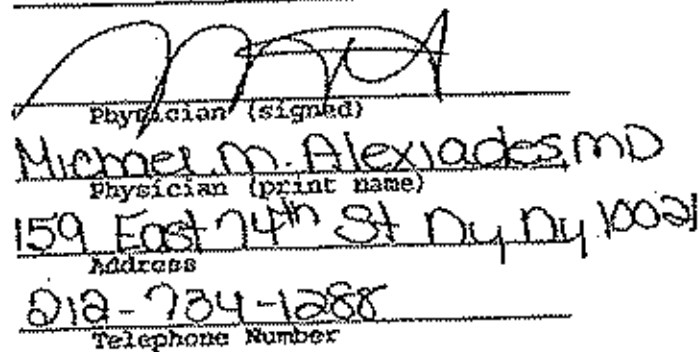 Physician (signed)
Michael M. Alexiades, MD
Physician (print name)
159 East 74th St Ny Ny 10021
Address
212-734-1288
Telephone Number